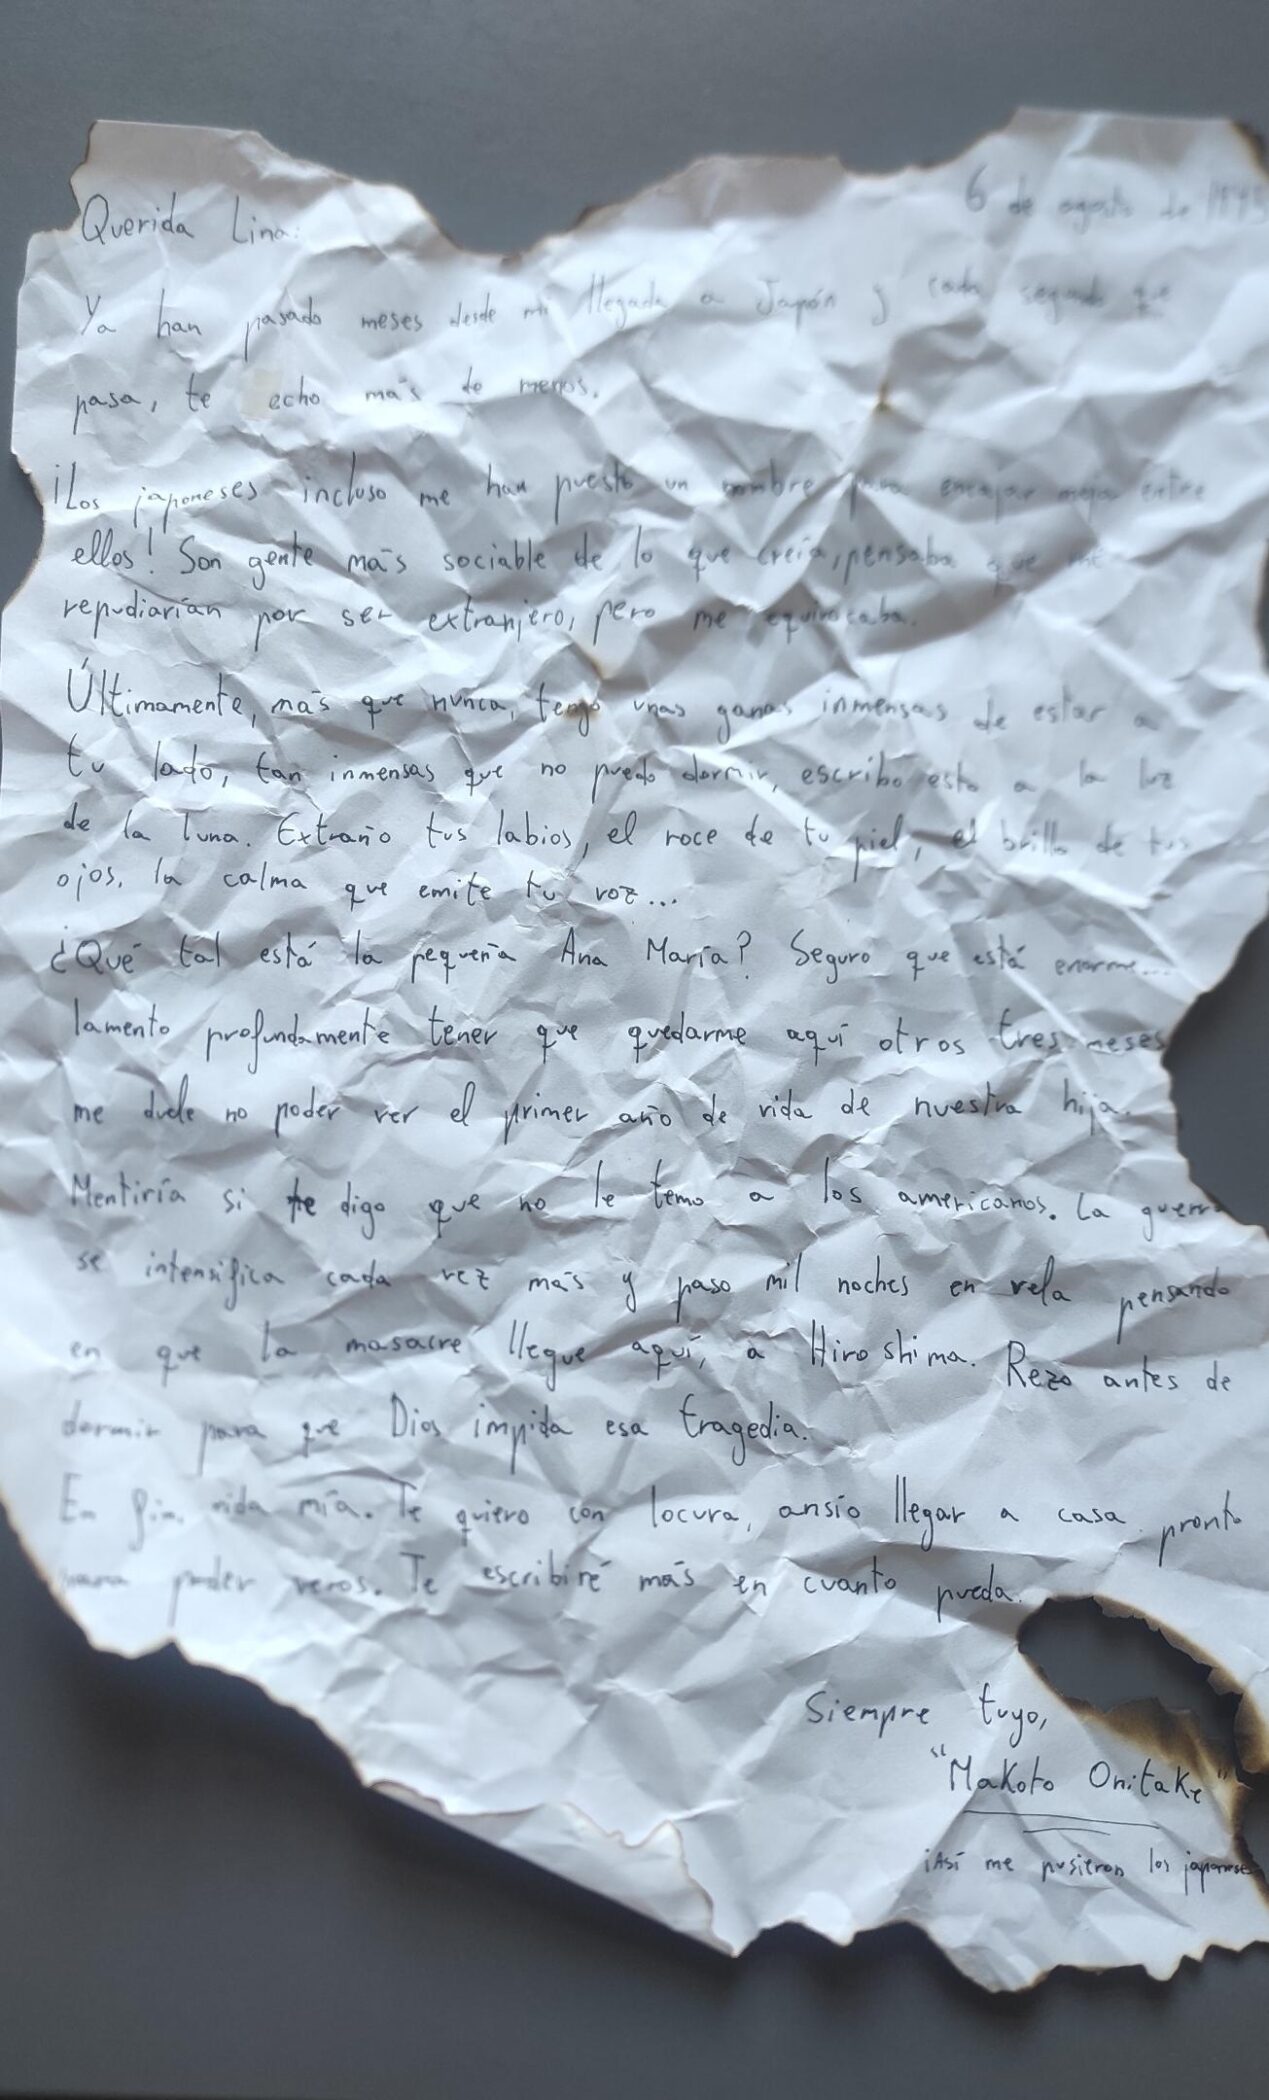 6 de agosto de 1945
Querida Lina:
Ya han pasado meses desde mi llegada a Japón y cada segundo que
pasa, te echo más de menos.
¡Los japoneses incluso me han puesto un nombre para encajar mejor entre
ellos! Son gente más sociable de lo que creía, pensaba que me
repudiarían por ser extranjero, pero me equivocaba.
Últimamente, más que nunca, tengo unas ganas inmensas de estar a
tu lado, tan inmensas que no puedo dormir, escribo esto a la luz
de la luna. Extraño tus labios, el roce de tu piel, el brillo de tus
ojos, la calma que emite tu voz...
¿Qué tal está la pequeña Ana María? Seguro que está enorme...
lamento profundamente tener que quedarme aquí otros tres meses
me duele no poder ver el primer año de vida de nuestra hija.
Mentiría si te digo que no le temo a los americanos. La guerra
se intensifica cada vez más y paso mil noches en vela pensando
en que la masacre llegue aquí, a Hiroshima. Rezo antes de
dormir para que Dios impida esa tragedia.
En fin, vida mía. Te quiero con locura, ansío llegar a casa pronto
para poder veros. Te escribiré más en cuanto pueda.
Siempre tuyo,
"Makoto Onitake"
¡Así me pusieron los japoneses